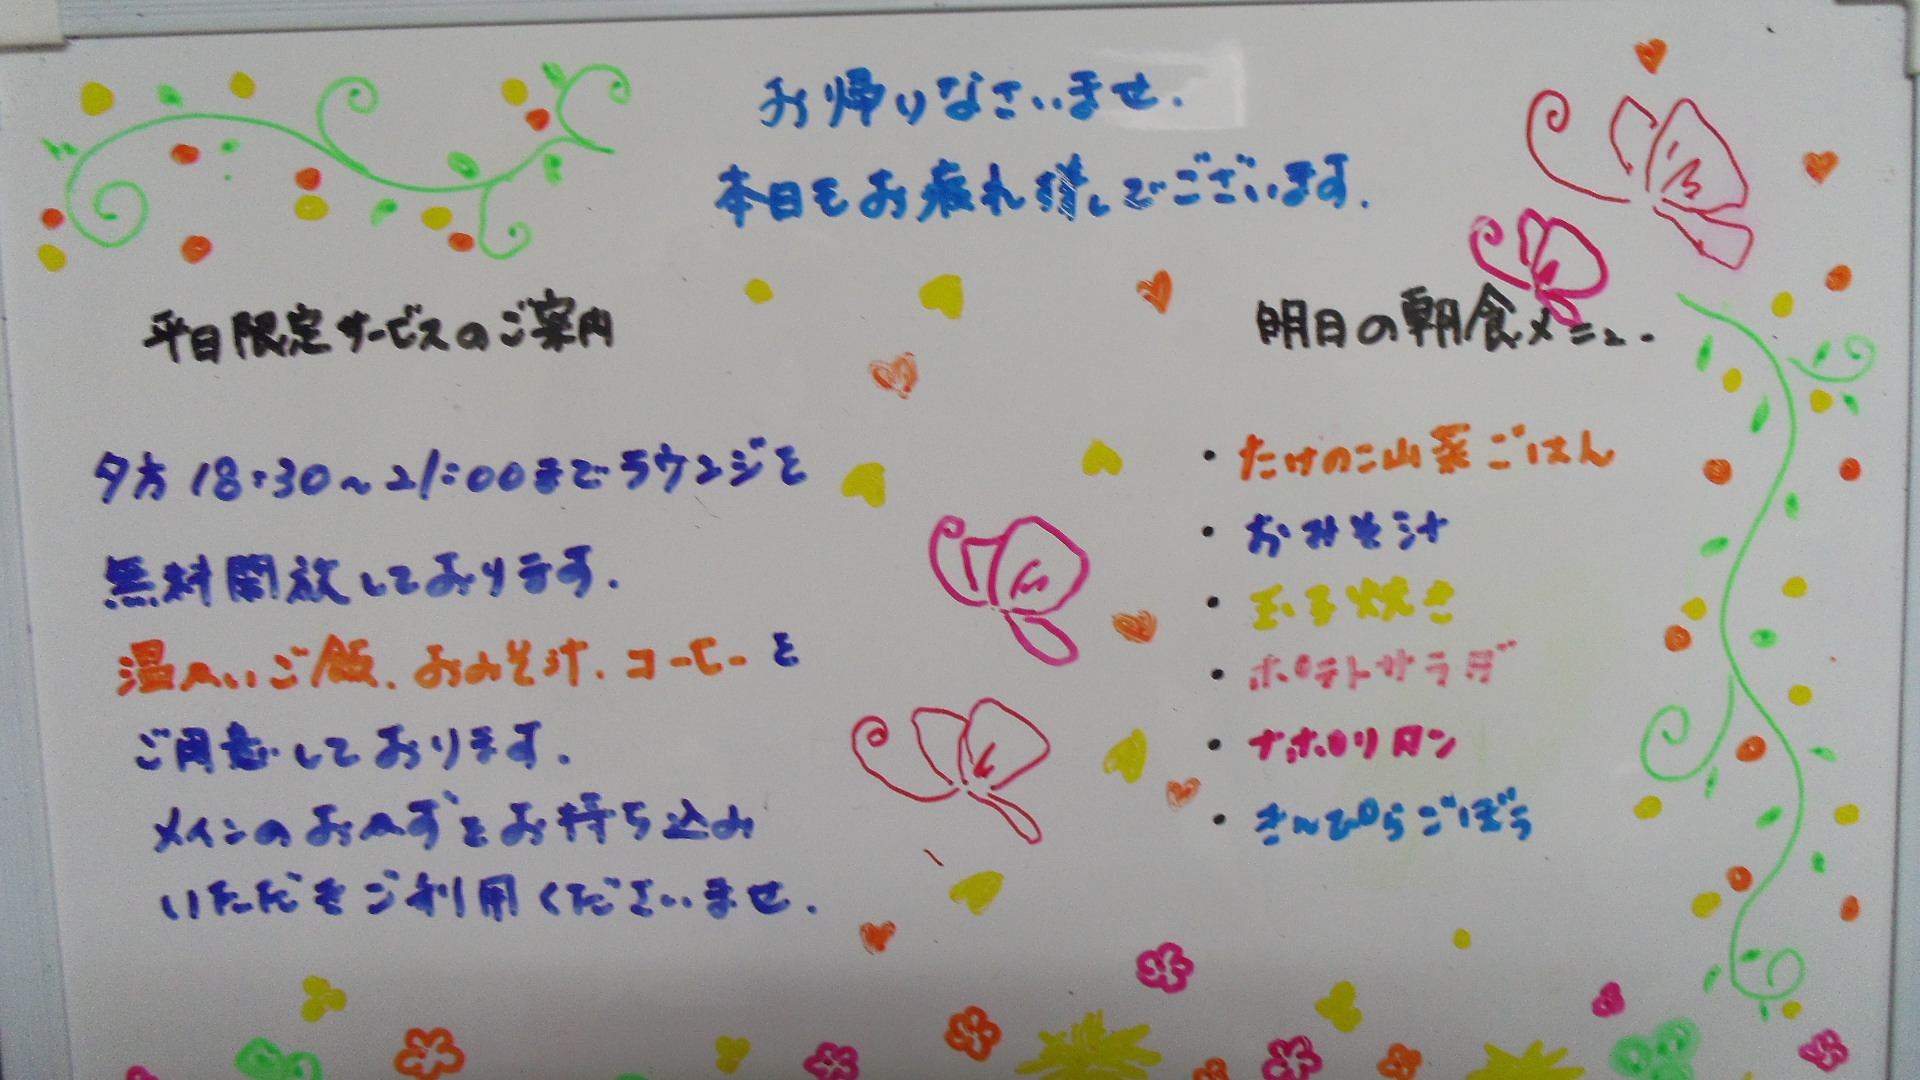 お帰りなさいませ.
本日もお疲れ様でございます.
平日限定サービスのご案内
夕方18:30～21:00までラウンジを
無料開放しております.
温かいご飯、おみそ汁、コーヒーを
ご用意しております.
メインのおかずをお持ち込み
いただきご利用くださいませ.
明日の朝食メニュー
・たけのこ山菜ごはん
・おみそ汁
・玉子焼き
・ポテトサラダ
・ナポリタン
・きんぴらごぼう